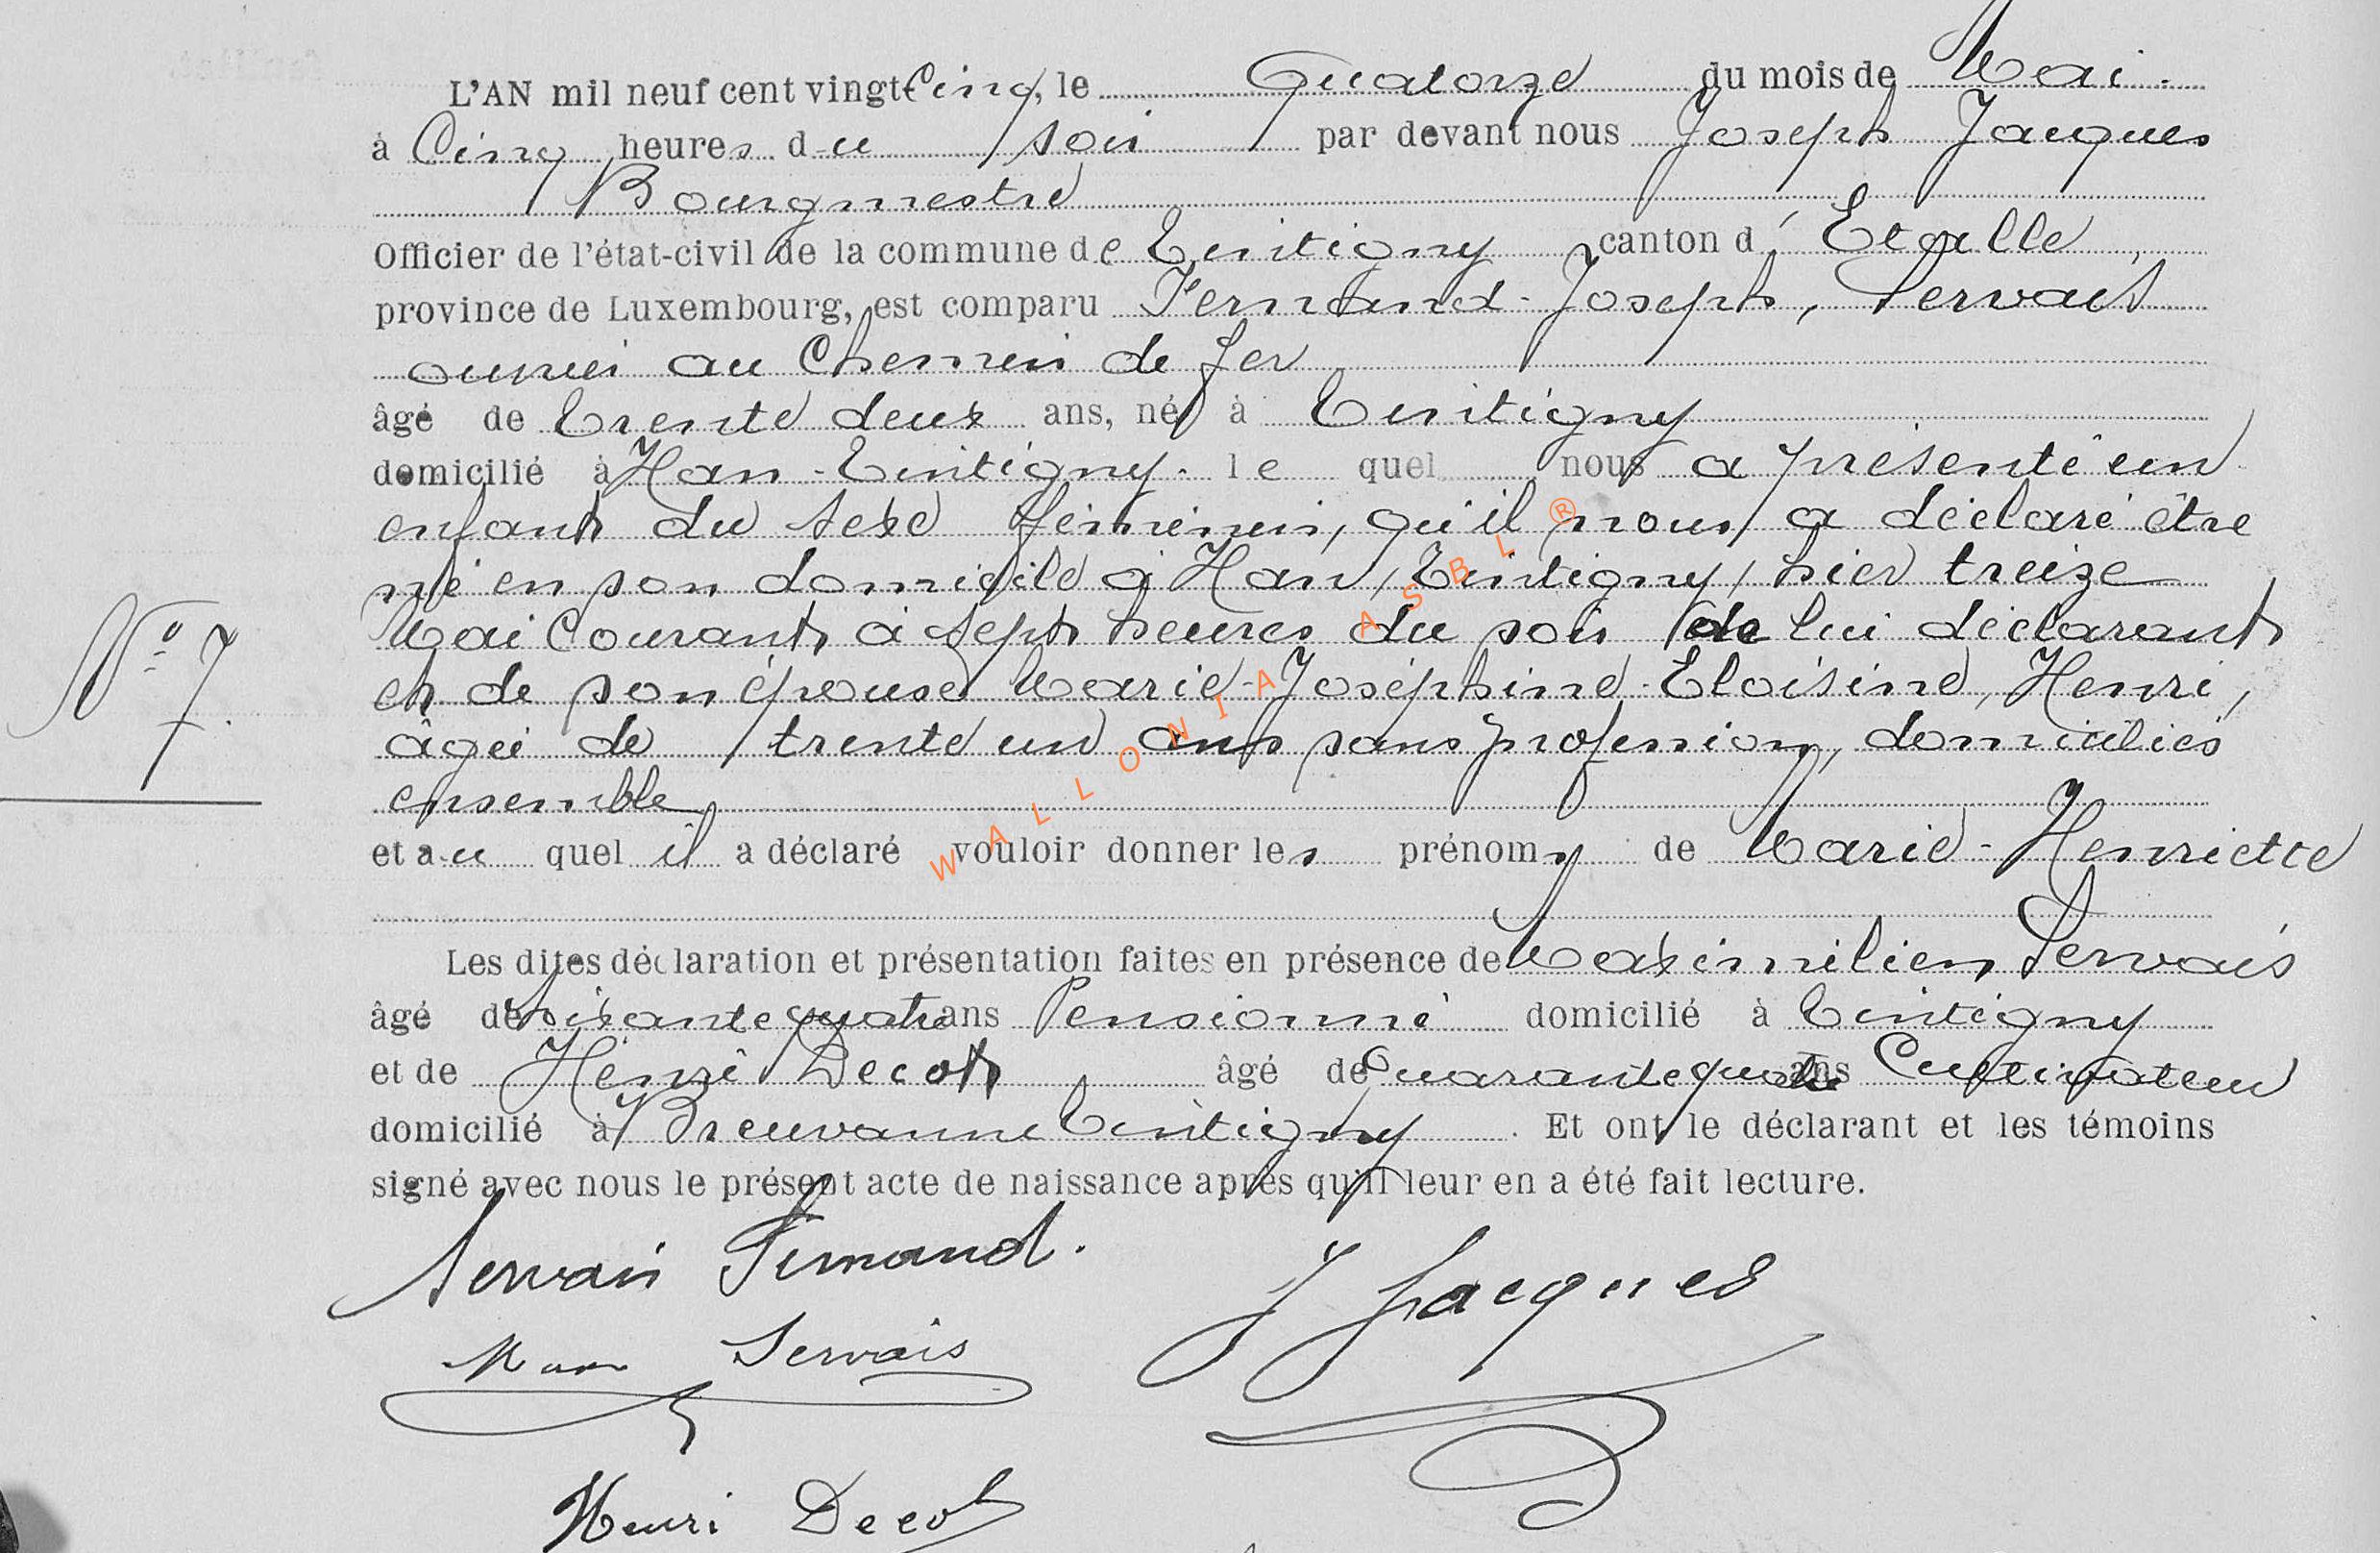 L'AN mil neuf cent vingt Cinq, le Quatorze du mois de Mai
à Cinq heures du soir par devant nous Joseph Jacques
Bourgmestre
Officier de l'état-civil de la commune de Tintigny canton d'Etalle,
province de Luxembourg, est comparu Fernand-Joseph, Servais
ouvrier au Chemin de fer
âgé de trente deux ans, né à Tintigny
domicilié à Han-Tintigny le quel nous a présenté un
enfant du sexe féminin, qu'il nous a déclaré être
né en son domicile à Han, Tintigny, hier treize
Mai Courant à sept heures du soir de lui déclarant
et de son épouse Marie-Joséphine-Eloïsine, Henri,
âgée de trente un ans sans profession, domiciliés
ensemble
et au quel il a déclaré vouloir donner les prénoms de Marie-Henriette
Les dites déclaration et présentation faites en présence de Maximilien Servais
âgé de soixante quatre ans Pensionné domicilié à Tintigny
et de Henri Decot âgé de Quarante quatre ans Cultivateur
domicilié à Breuvanne Tintigny. Et ont le déclarant et les témoins
signé avec nous le présent acte de naissance après qu'il leur en a été fait lecture.
N° 7
Servais Fernand.
J Jacques
Max Servais
Henri Decot
WALLONIA ASBL ®